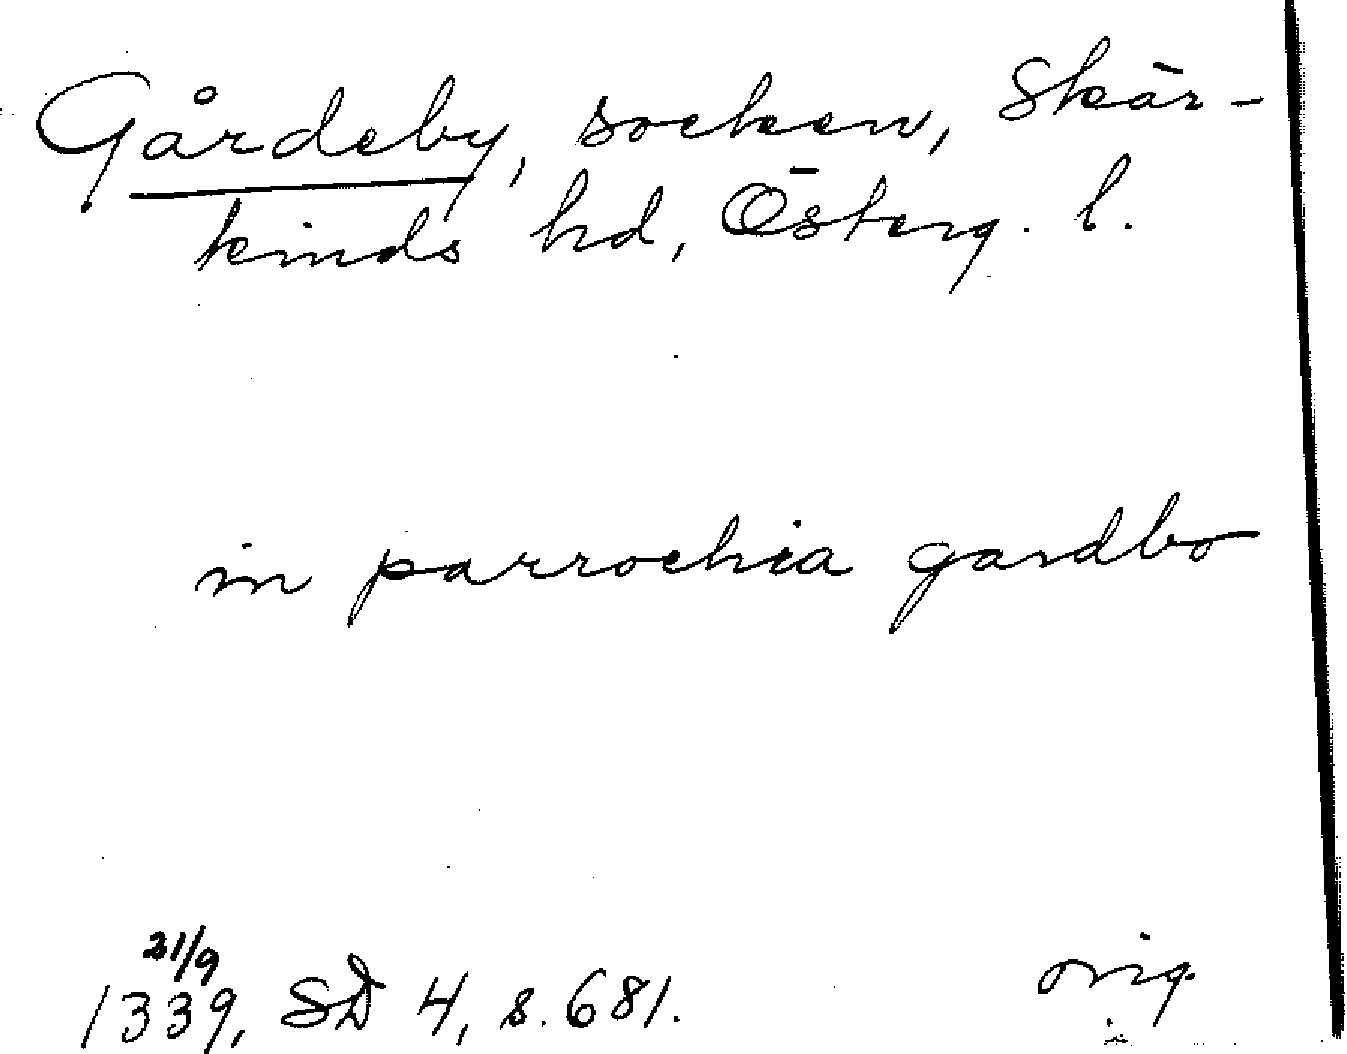 Gårdeby, socken, Skär-
kinds hd, Österg. l.
in parrochia gardbo
21/9
1339, SD 4, s. 681.
orig.